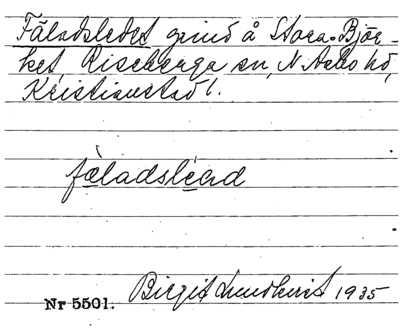 Fäladsledet grind å Stora-Björ-
ket, Riseberga sn, N. Åsbo hd,
Kristianstad l.
fæladslèad
Birgit Lundkvist 1935
Nr 5501.